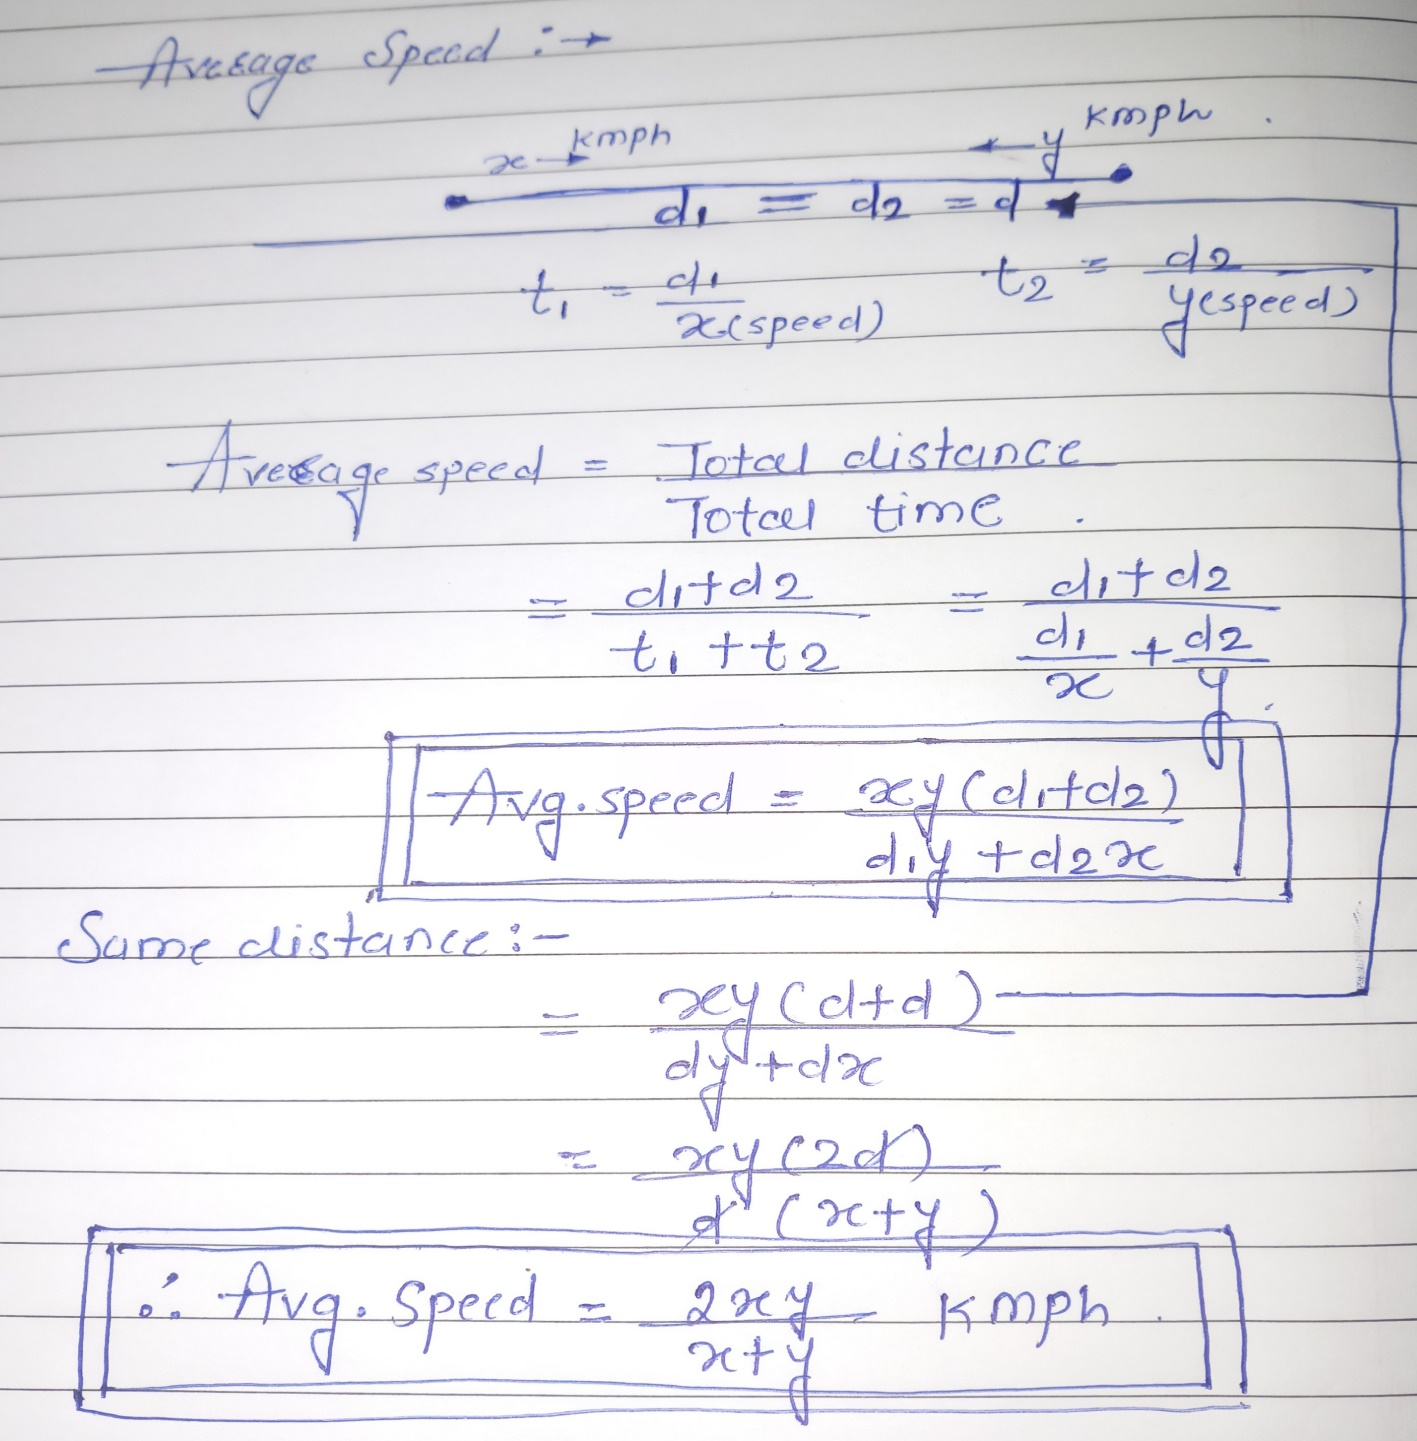 Average Speed :→
x → kmph ← y kmph .
d₁ = d₂ = d
t₁ = d₁/x(speed) t₂ = d₂/y(speed)
Average speed = Total distance/Total time .
= (d₁+d₂)/(t₁+t₂) = (d₁+d₂)/(d₁/x + d₂/y)
Avg. speed = xy(d₁+d₂)/(d₁y+d₂x)
Same distance :-
= xy(d+d)/(dy+dx)
= xy(2d)/(d(x+y))
∴ Avg. Speed = 2xy/(x+y) kmph .